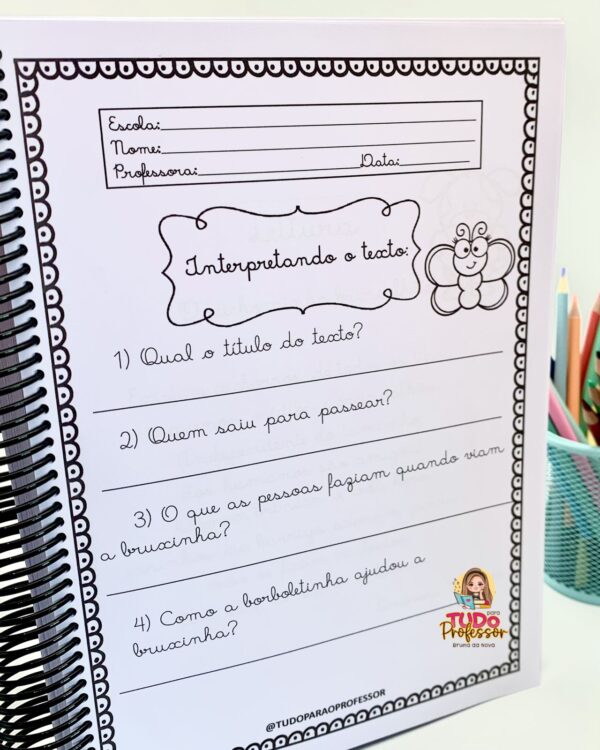 Escola:
Nome:
Professora: Data:
Interpretando o texto:
1) Qual o título do texto?
2) Quem saiu para passear?
3) O que as pessoas faziam quando viam
a bruxinha?
4) Como a borboletinha ajudou a
bruxinha?
TUDO para
Professor
Bruna da Nova
@TUDOPARAOPROFESSOR